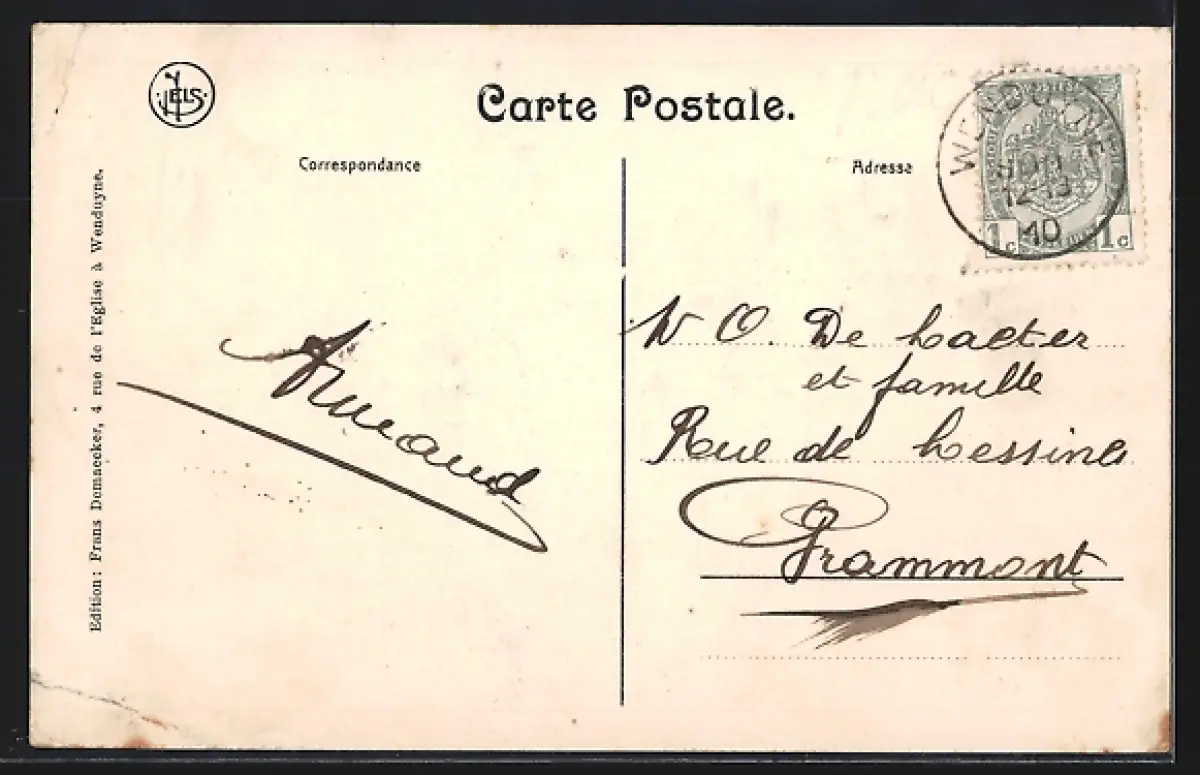 NELS
Carte Postale.
Correspondance
Adresse
WENDUYNE
12-13
10
1c 1c
Edition: Frans Demnecker, 4 rue de l'Eglise à Wenduyne.
Armand
O. De Laeter
et famille
Rue de Lessines
Grammont